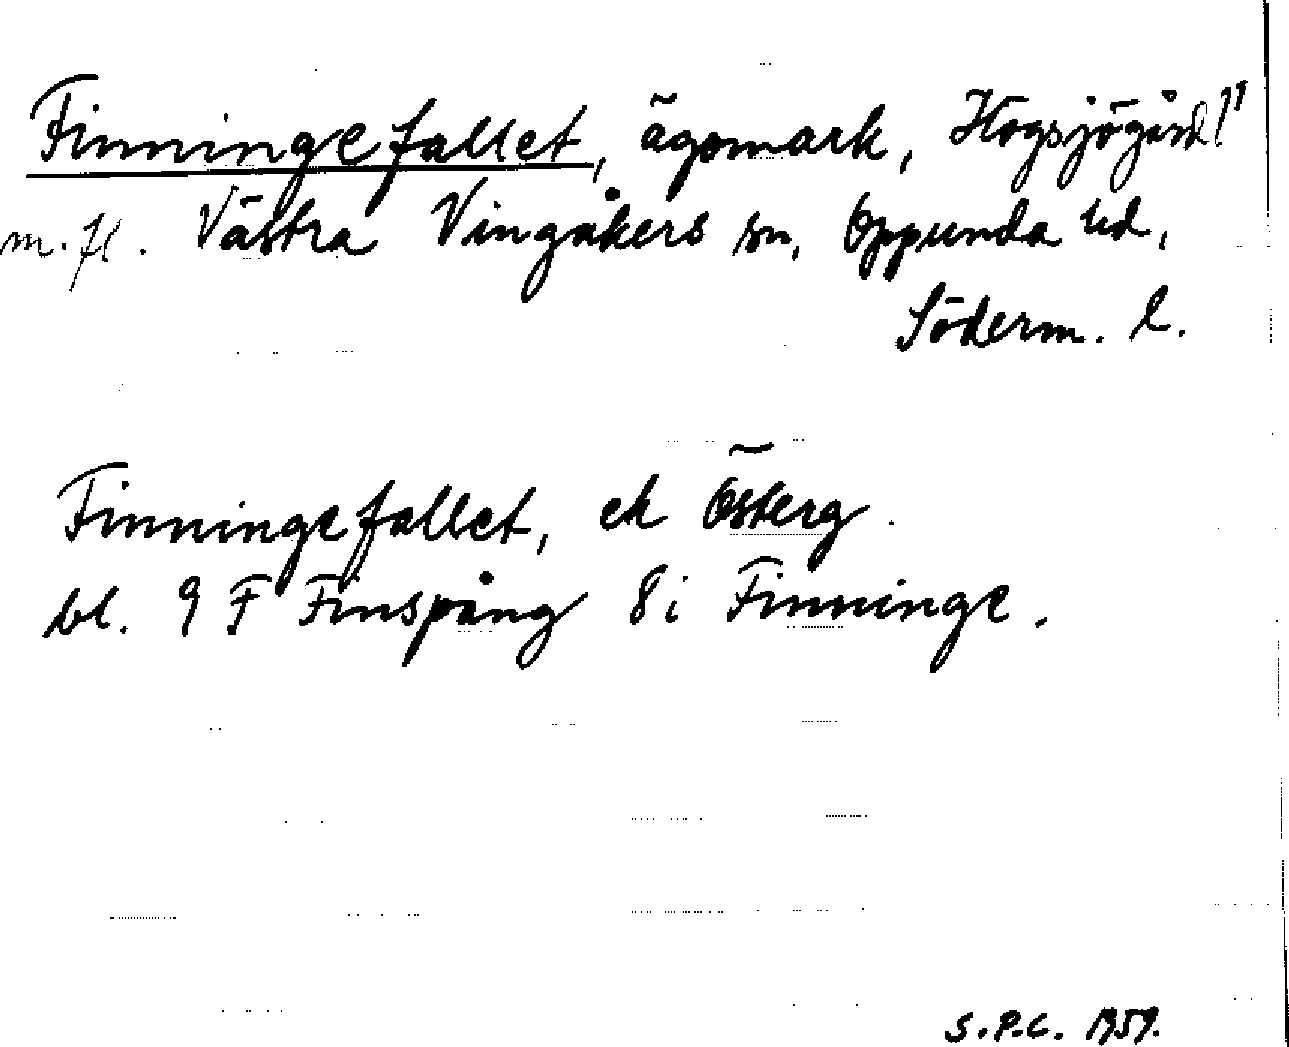 Finningefallet, ägomark, Högsjögård 1¹
m. fl. Västra Vingåkers sn, Oppunda hd,
Söderm. l.
Finningefallet, ek Österg.
bl. 9 F Finspång 8 i Finninge.
S.P.C. 1959.